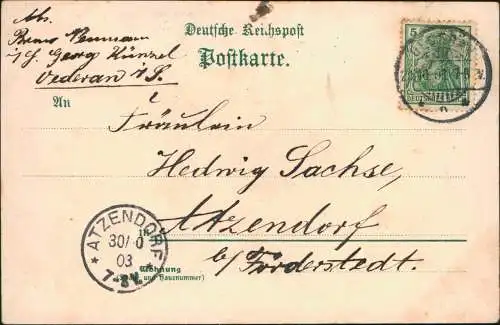 Abs.
Bruno Neumann
i/h. Georg Künzel
Oederan i/S.
Deutsche Reichspost
Postkarte.
5
An
Fräulein
Hedwig Sachse,
in Atzendorf
b/ Förderstedt.
Wohnung
(Straße und Hausnummer)
ATZENDORF
30/10
03
7-8V.